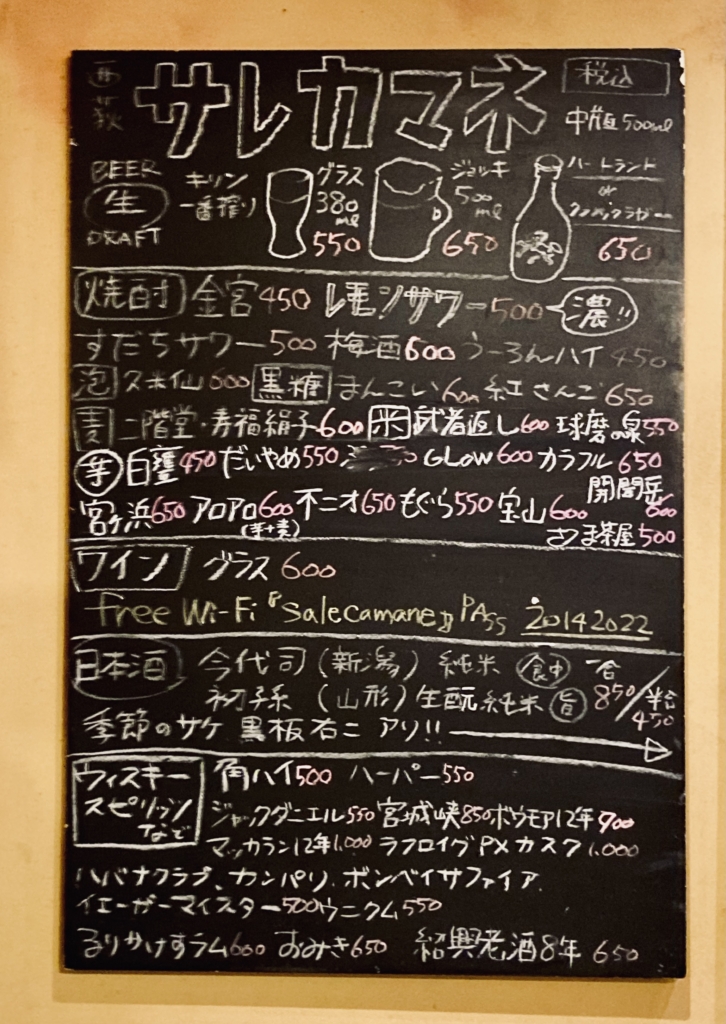 西荻 サレカマネ 税込
中瓶500ml
BEER 生 DRAFT キリン一番搾り グラス 380ml 550 ジョッキ 500ml 650 ハートランド or クラシックラガー 650
焼酎 金宮450 レモンサワー500 濃!!
すだちサワー500 梅酒600 うーろんハイ 450
泡 久米仙600 黒糖 まんこい600 紅さんご650
麦 二階堂・寿福絹子600 米 武者返し600 球磨の泉550
芋 白甕450 だいやめ550 GLOW600 カラフル650
開聞岳600
宮ヶ浜650 アロアロ600(芋+麦) 不二才650 もぐら550 宝山600
さつま茶屋500
ワイン グラス 600
free Wi-Fi『Salecamane』PASS 20142022
日本酒 今代司(新潟) 純米 食中 一合850/半合450
初孫(山形)生酛純米 旨
季節のサケ 黒板右ニ アリ!!
ウィスキー スピリッツなど 角ハイ500 ハーパー550
ジャックダニエル550 宮城峡850 ボウモア12年900
マッカラン12年1,000 ラフロイグPXカスク1,000
ハバナクラブ、カンパリ、ボンベイサファイア
イエーガーマイスター500 ウニクム550
るりかけすラム600 おみき650 紹興老酒8年 650